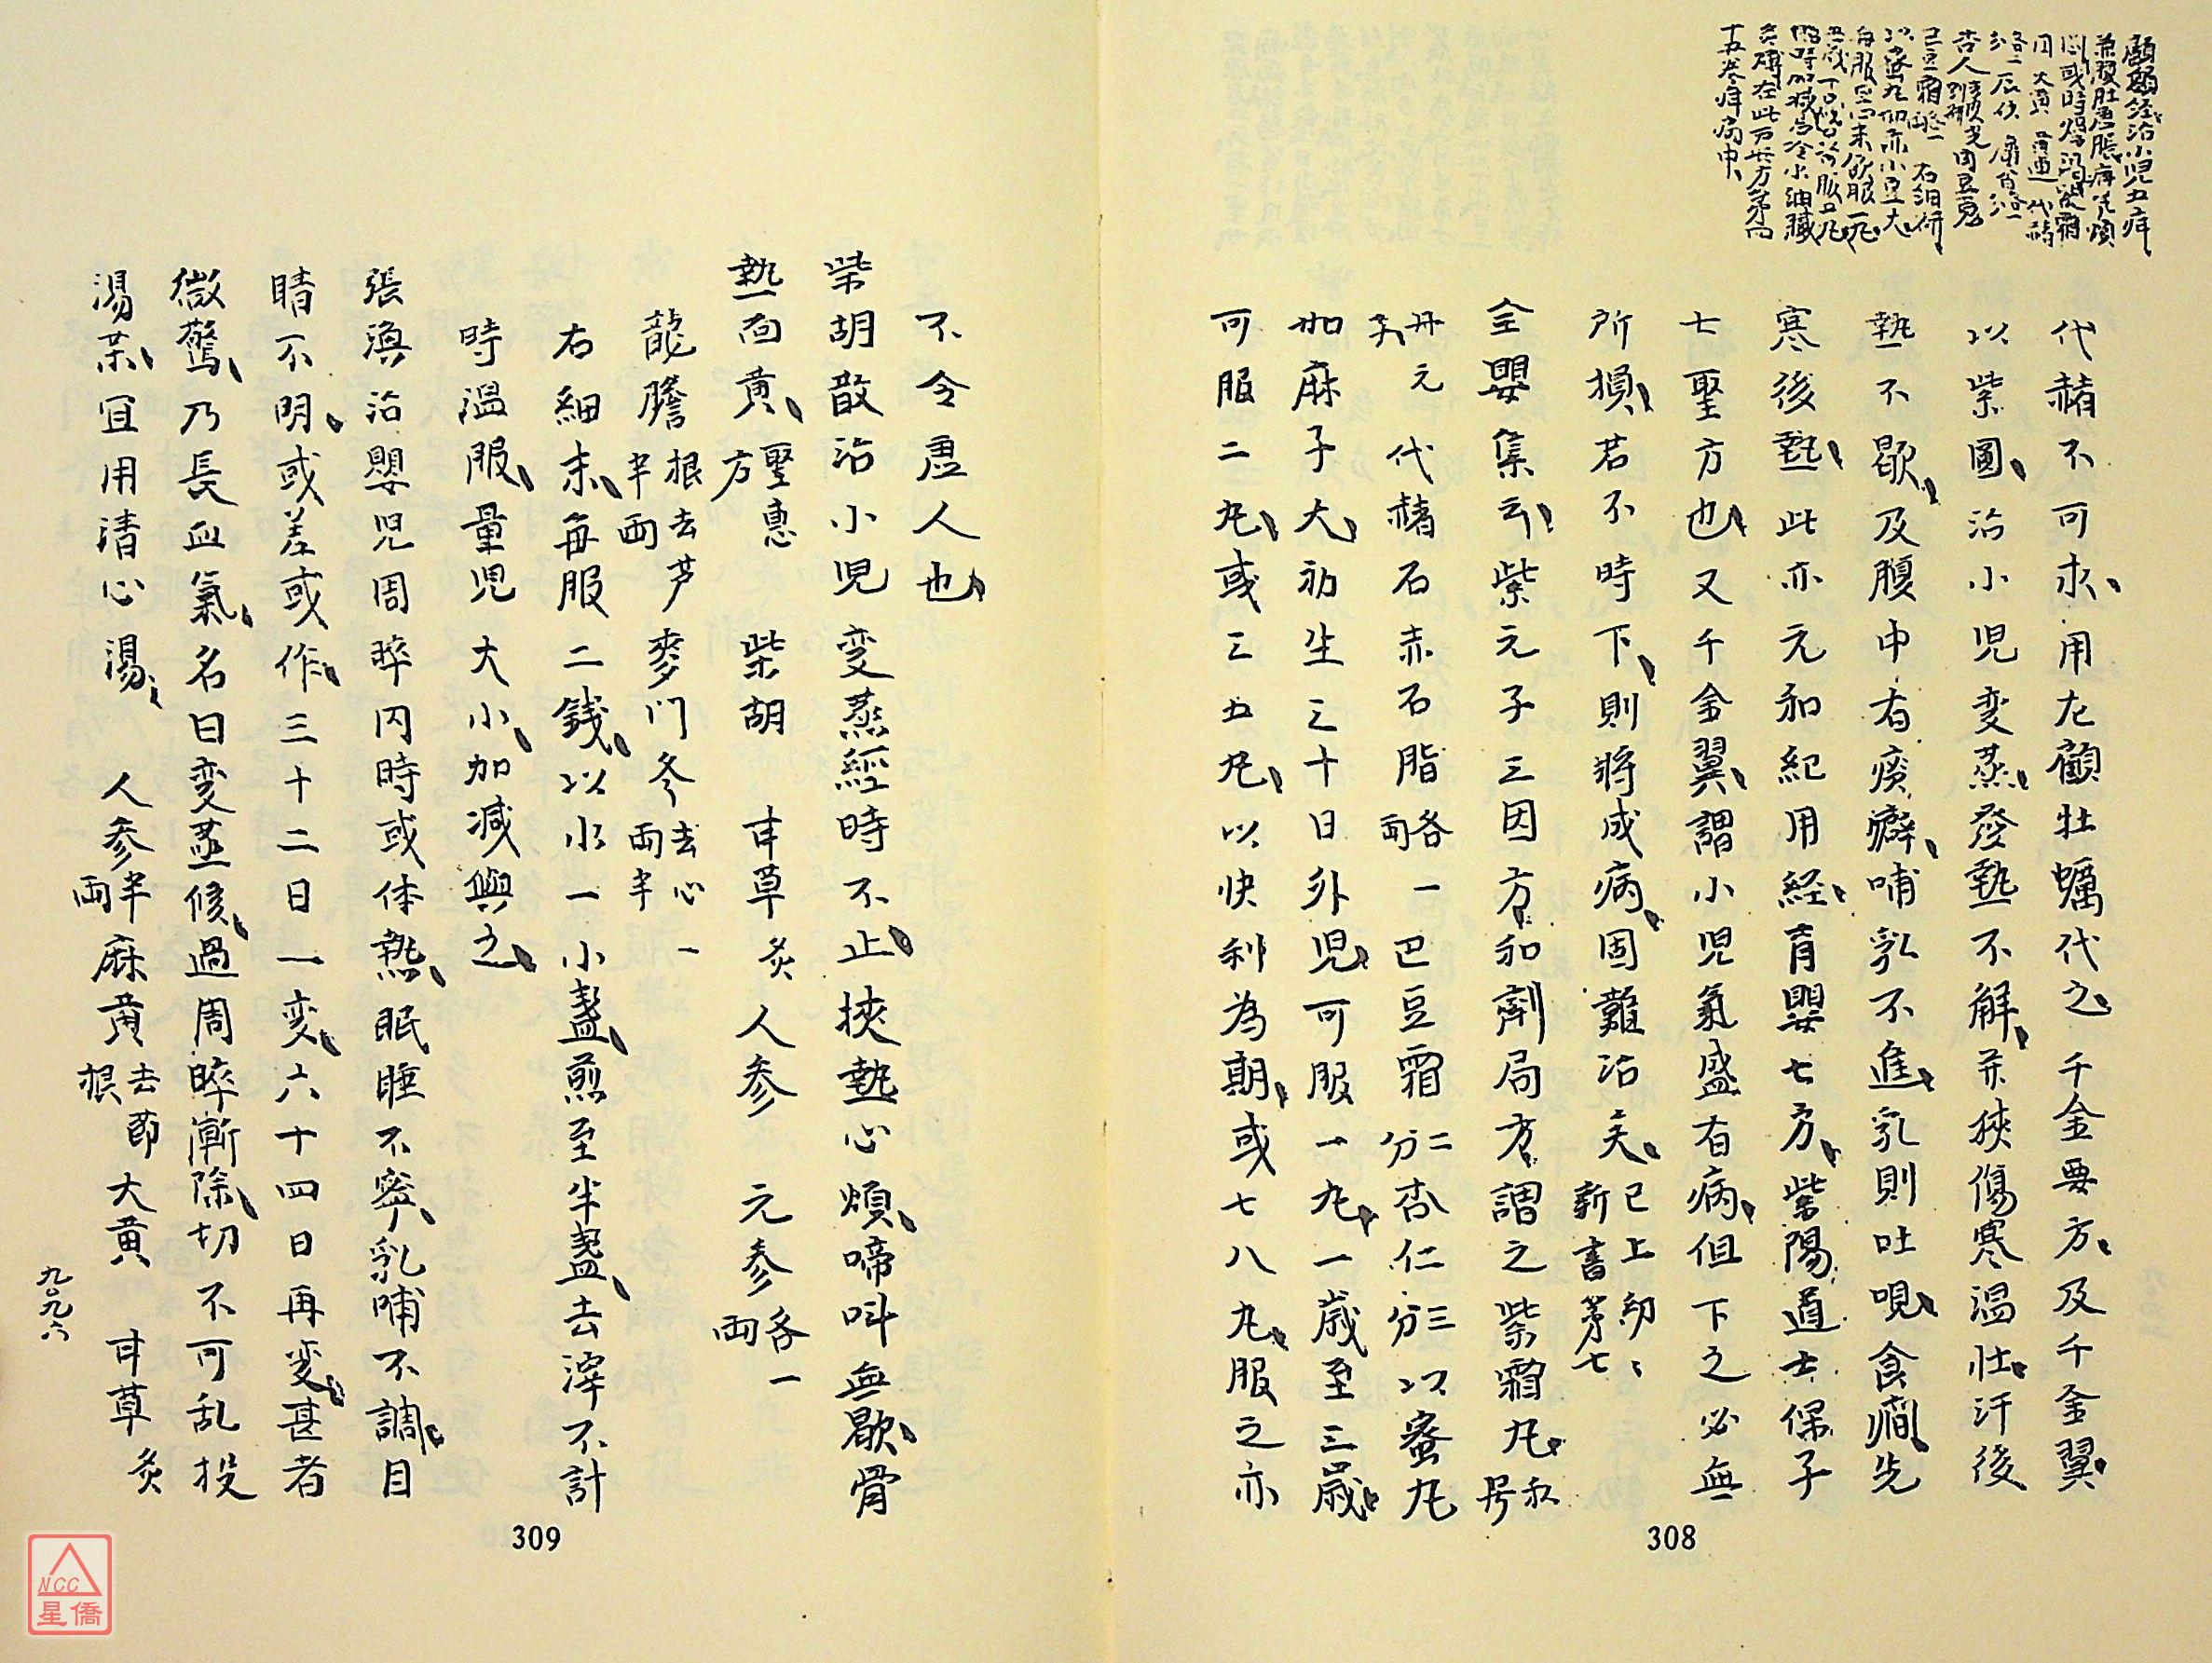 代赭不可求、用左顧牡蠣代之、千金要方、及千金翼、
以紫圓、治小児変蒸、發熱不解、并挾傷寒温壮、汗後
熱不歇、及腹中有痰癖、哺乳不進、乳則吐哯、食癇、先
寒後熱、此亦元和紀用経、育嬰七方、紫陽道士保子
七聖方也、又千金翼、謂小児氣盛有病、但下之必無
所損、若不時下、則將成病、固難治矣、已上幼々新書第七
全嬰集云、紫元子三因方、和劑局方、謂之紫霜丸、
丹元 代赭石赤石脂各一両 巴豆霜二分 杏仁三分 以蜜丸
如麻子大、初生三十日外児、可服一丸、一歳至三歳、
可服二丸、或三五丸、以快利為期、或七八丸、服之亦
308
不令虚人也、
柴胡散治小児変蒸經時不止、挾熱心煩、啼叫無歇、骨
熱面黄、聖恵方 柴胡 甘草炙 人参 元参各一両
龍膽根去芦半両 麥門冬去心一両半
右細末、毎服二錢、以水一小盞、煎至半盞、去滓不計
時温服、量児大小、加減與之、
張渙治嬰児周晬内時或体熱、眠睡不寧、乳哺不調、目
睛不明、或差或作、三十二日一変、六十四日再変、甚者
微驚、乃長血氣、名曰変蒸候、過周晬漸除、切不可乱投
湯茶、宜用清心湯、 人参半両 麻黄去節根 大黄 甘草炙
309
九〇九六
NCC
星僑